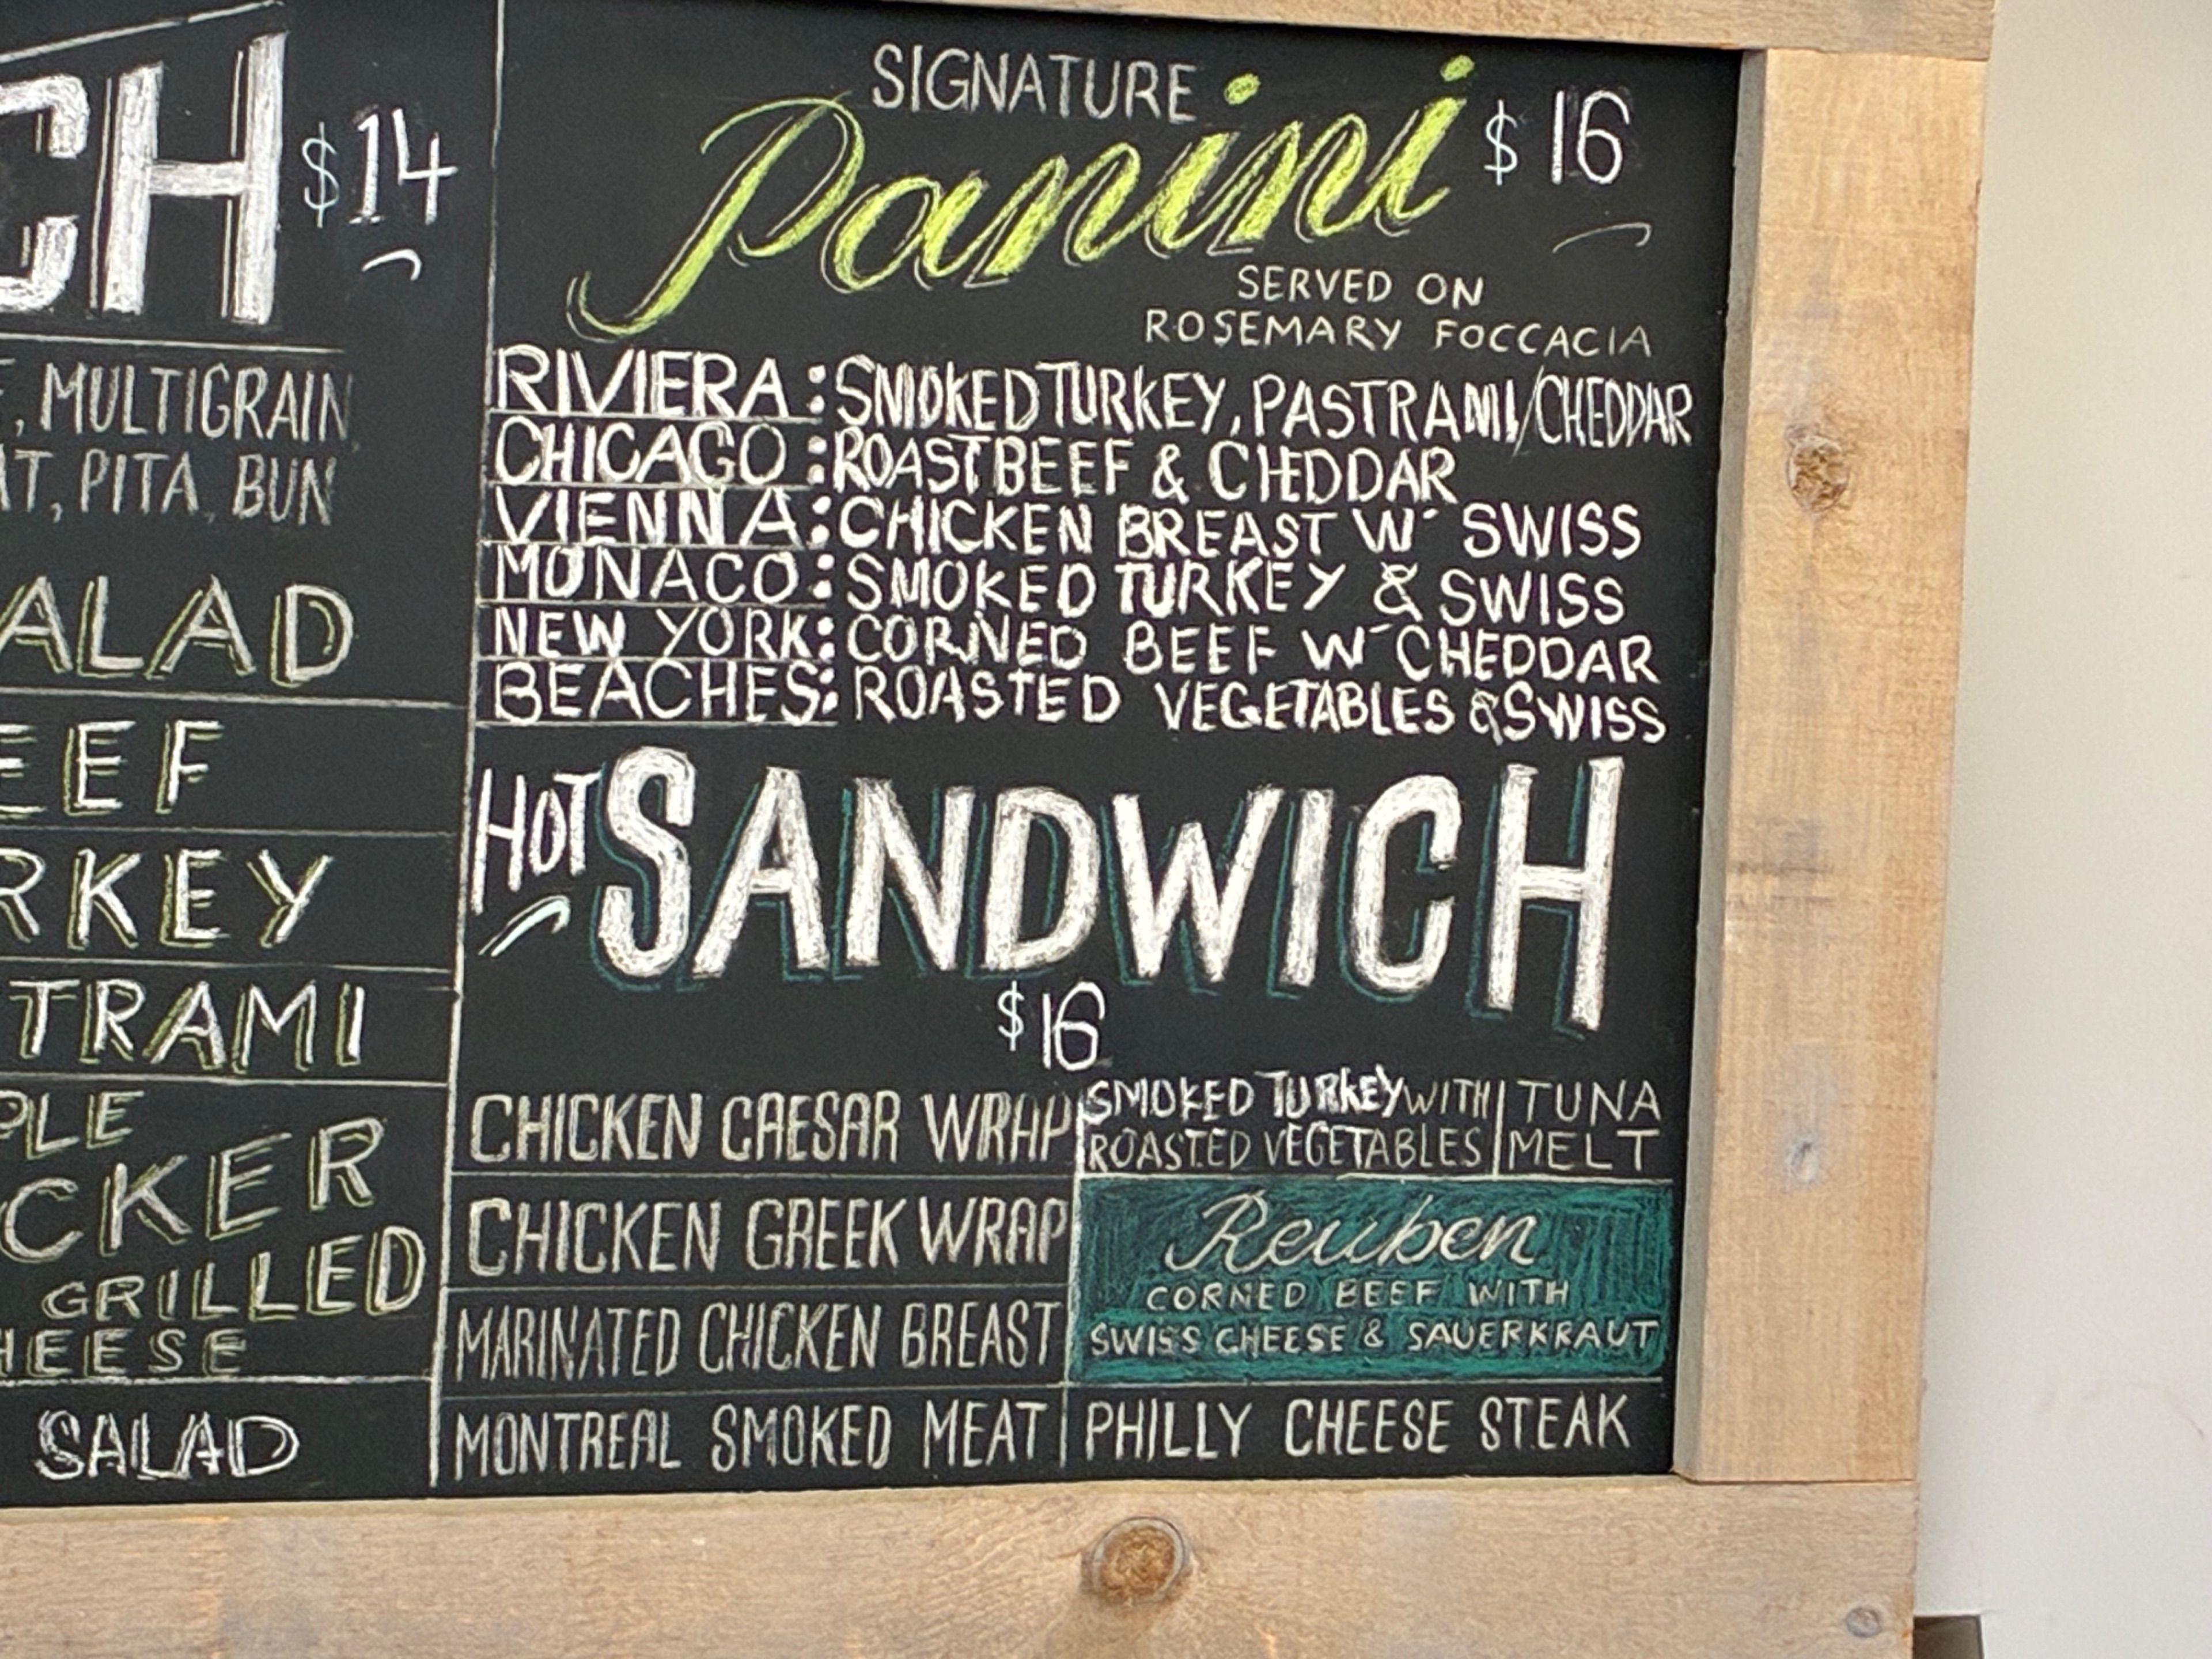 CH $14
, MULTIGRAIN
AT, PITA, BUN
ALAD
EEF
RKEY
TRAMI
PLE
CKER
GRILLED
HEESE
SALAD
SIGNATURE
Panini $16
SERVED ON
ROSEMARY FOCCACIA
RIVIERA: SMOKED TURKEY, PASTRAMI/CHEDDAR
CHICAGO: ROAST BEEF & CHEDDAR
VIENNA: CHICKEN BREAST W' SWISS
MONACO: SMOKED TURKEY & SWISS
NEW YORK: CORNED BEEF W' CHEDDAR
BEACHES: ROASTED VEGETABLES & SWISS
HOT SANDWICH
$16
CHICKEN CAESAR WRAP
CHICKEN GREEK WRAP
MARINATED CHICKEN BREAST
MONTREAL SMOKED MEAT
SMOKED TURKEY WITH
ROASTED VEGETABLES
TUNA
MELT
Reuben
CORNED BEEF WITH
SWISS CHEESE & SAUERKRAUT
PHILLY CHEESE STEAK